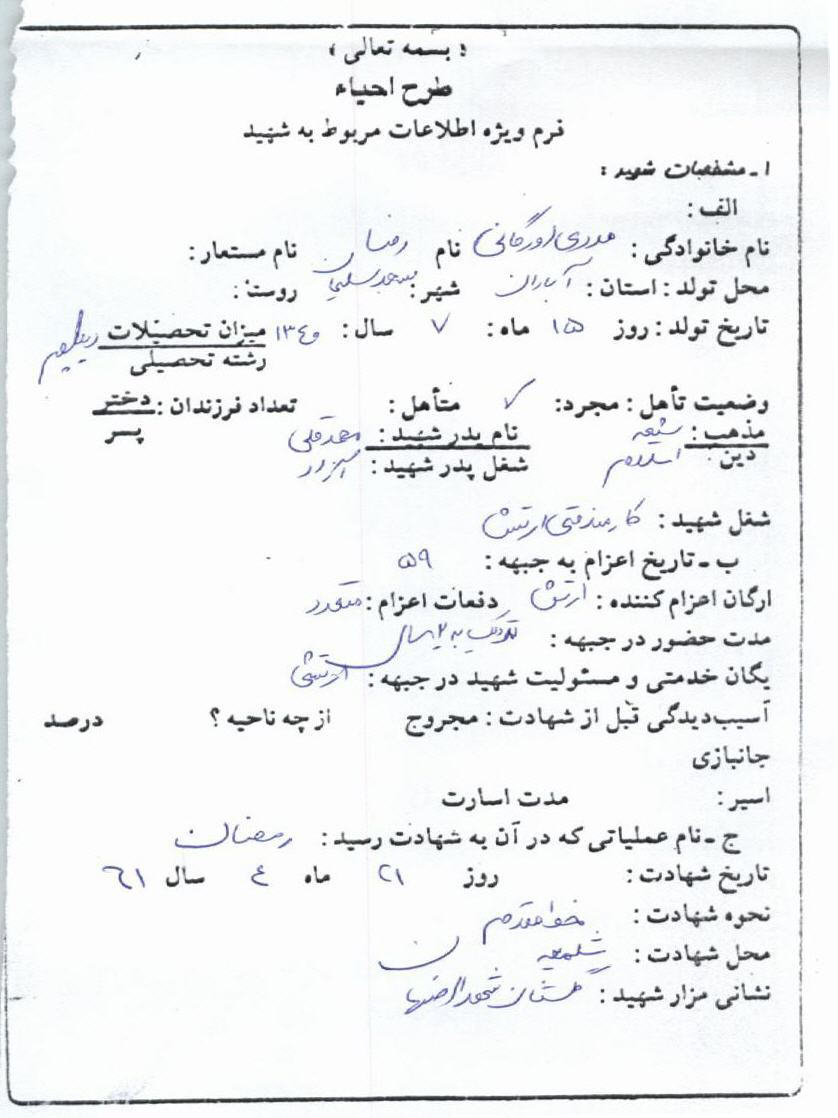 « بسمه تعالی »
طرح احیاء
فرم ویژه اطلاعات مربوط به شهید
۱ ـ مشخصات شهید :
الف :
نام خانوادگی : نام نام مستعار :
محل تولد : استان : آبادان شهر : مسجدسلیمان روستا :
تاریخ تولد : روز ۱۵ ماه : ۷ سال : ۱۳۴۰ میزان تحصیلات دیپلم
رشته تحصیلی
وضعیت تأهل : مجرد : ✓ متأهل : تعداد فرزندان : دختر
پسر
مذهب : شیعه نام پدر شهید :
دین : اسلام شغل پدر شهید :
شغل شهید : کارمند فنی ارتش
ب ـ تاریخ اعزام به جبهه : ۵۹
ارگان اعزام کننده : ارتش دفعات اعزام : متعدد
مدت حضور در جبهه : نزدیک به ۲ سال
یگان خدمتی و مسئولیت شهید در جبهه : ارتشی
آسیب‌دیدگی قبل از شهادت : مجروح از چه ناحیه ؟ درصد
جانبازی
اسیر : مدت اسارت
ج ـ نام عملیاتی که در آن به شهادت رسید : رمضان
تاریخ شهادت : روز ۲۱ ماه ٤ سال ٦۱
نحوه شهادت : خط مقدم
محل شهادت : شلمچه
نشانی مزار شهید : گلستان شهدا